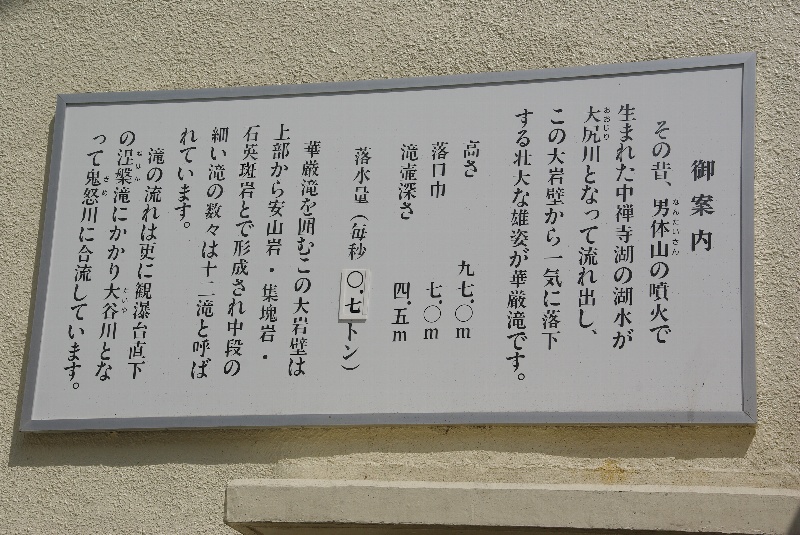 御案内
その昔、男体山の噴火で
生まれた中禅寺湖の湖水が
大尻川となって流れ出し、
この大岩壁から一気に落下
する壮大な雄姿が華厳滝です。
高さ 九七.〇m
落口巾 七.〇m
滝壷深さ 四.五m
落水量(毎秒〇.七トン)
華厳滝を囲むこの大岩壁は
上部から安山岩・集塊岩・
石英斑岩とで形成され中段の
細い滝の数々は十二滝と呼ば
れています。
滝の流れは更に観瀑台直下
の涅槃滝にかかり大谷川とな
って鬼怒川に合流しています。